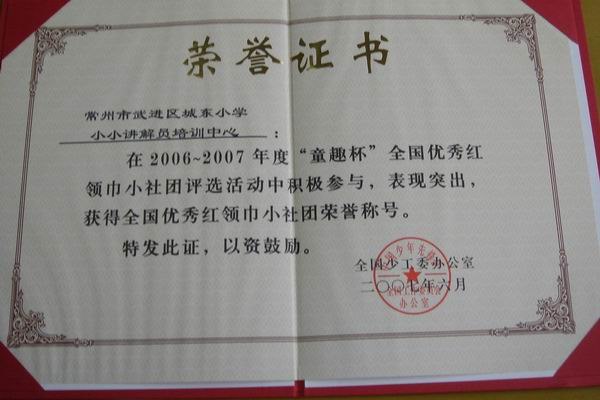 荣誉证书
常州市武进区城东小学
小小讲解员培训中心：
在2006~2007年度“童趣杯”全国优秀红
领巾小社团评选活动中积极参与，表现突出，
获得全国优秀红领巾小社团荣誉称号。
特发此证，以资鼓励。
全国少工委办公室
二〇〇七年六月
办公室